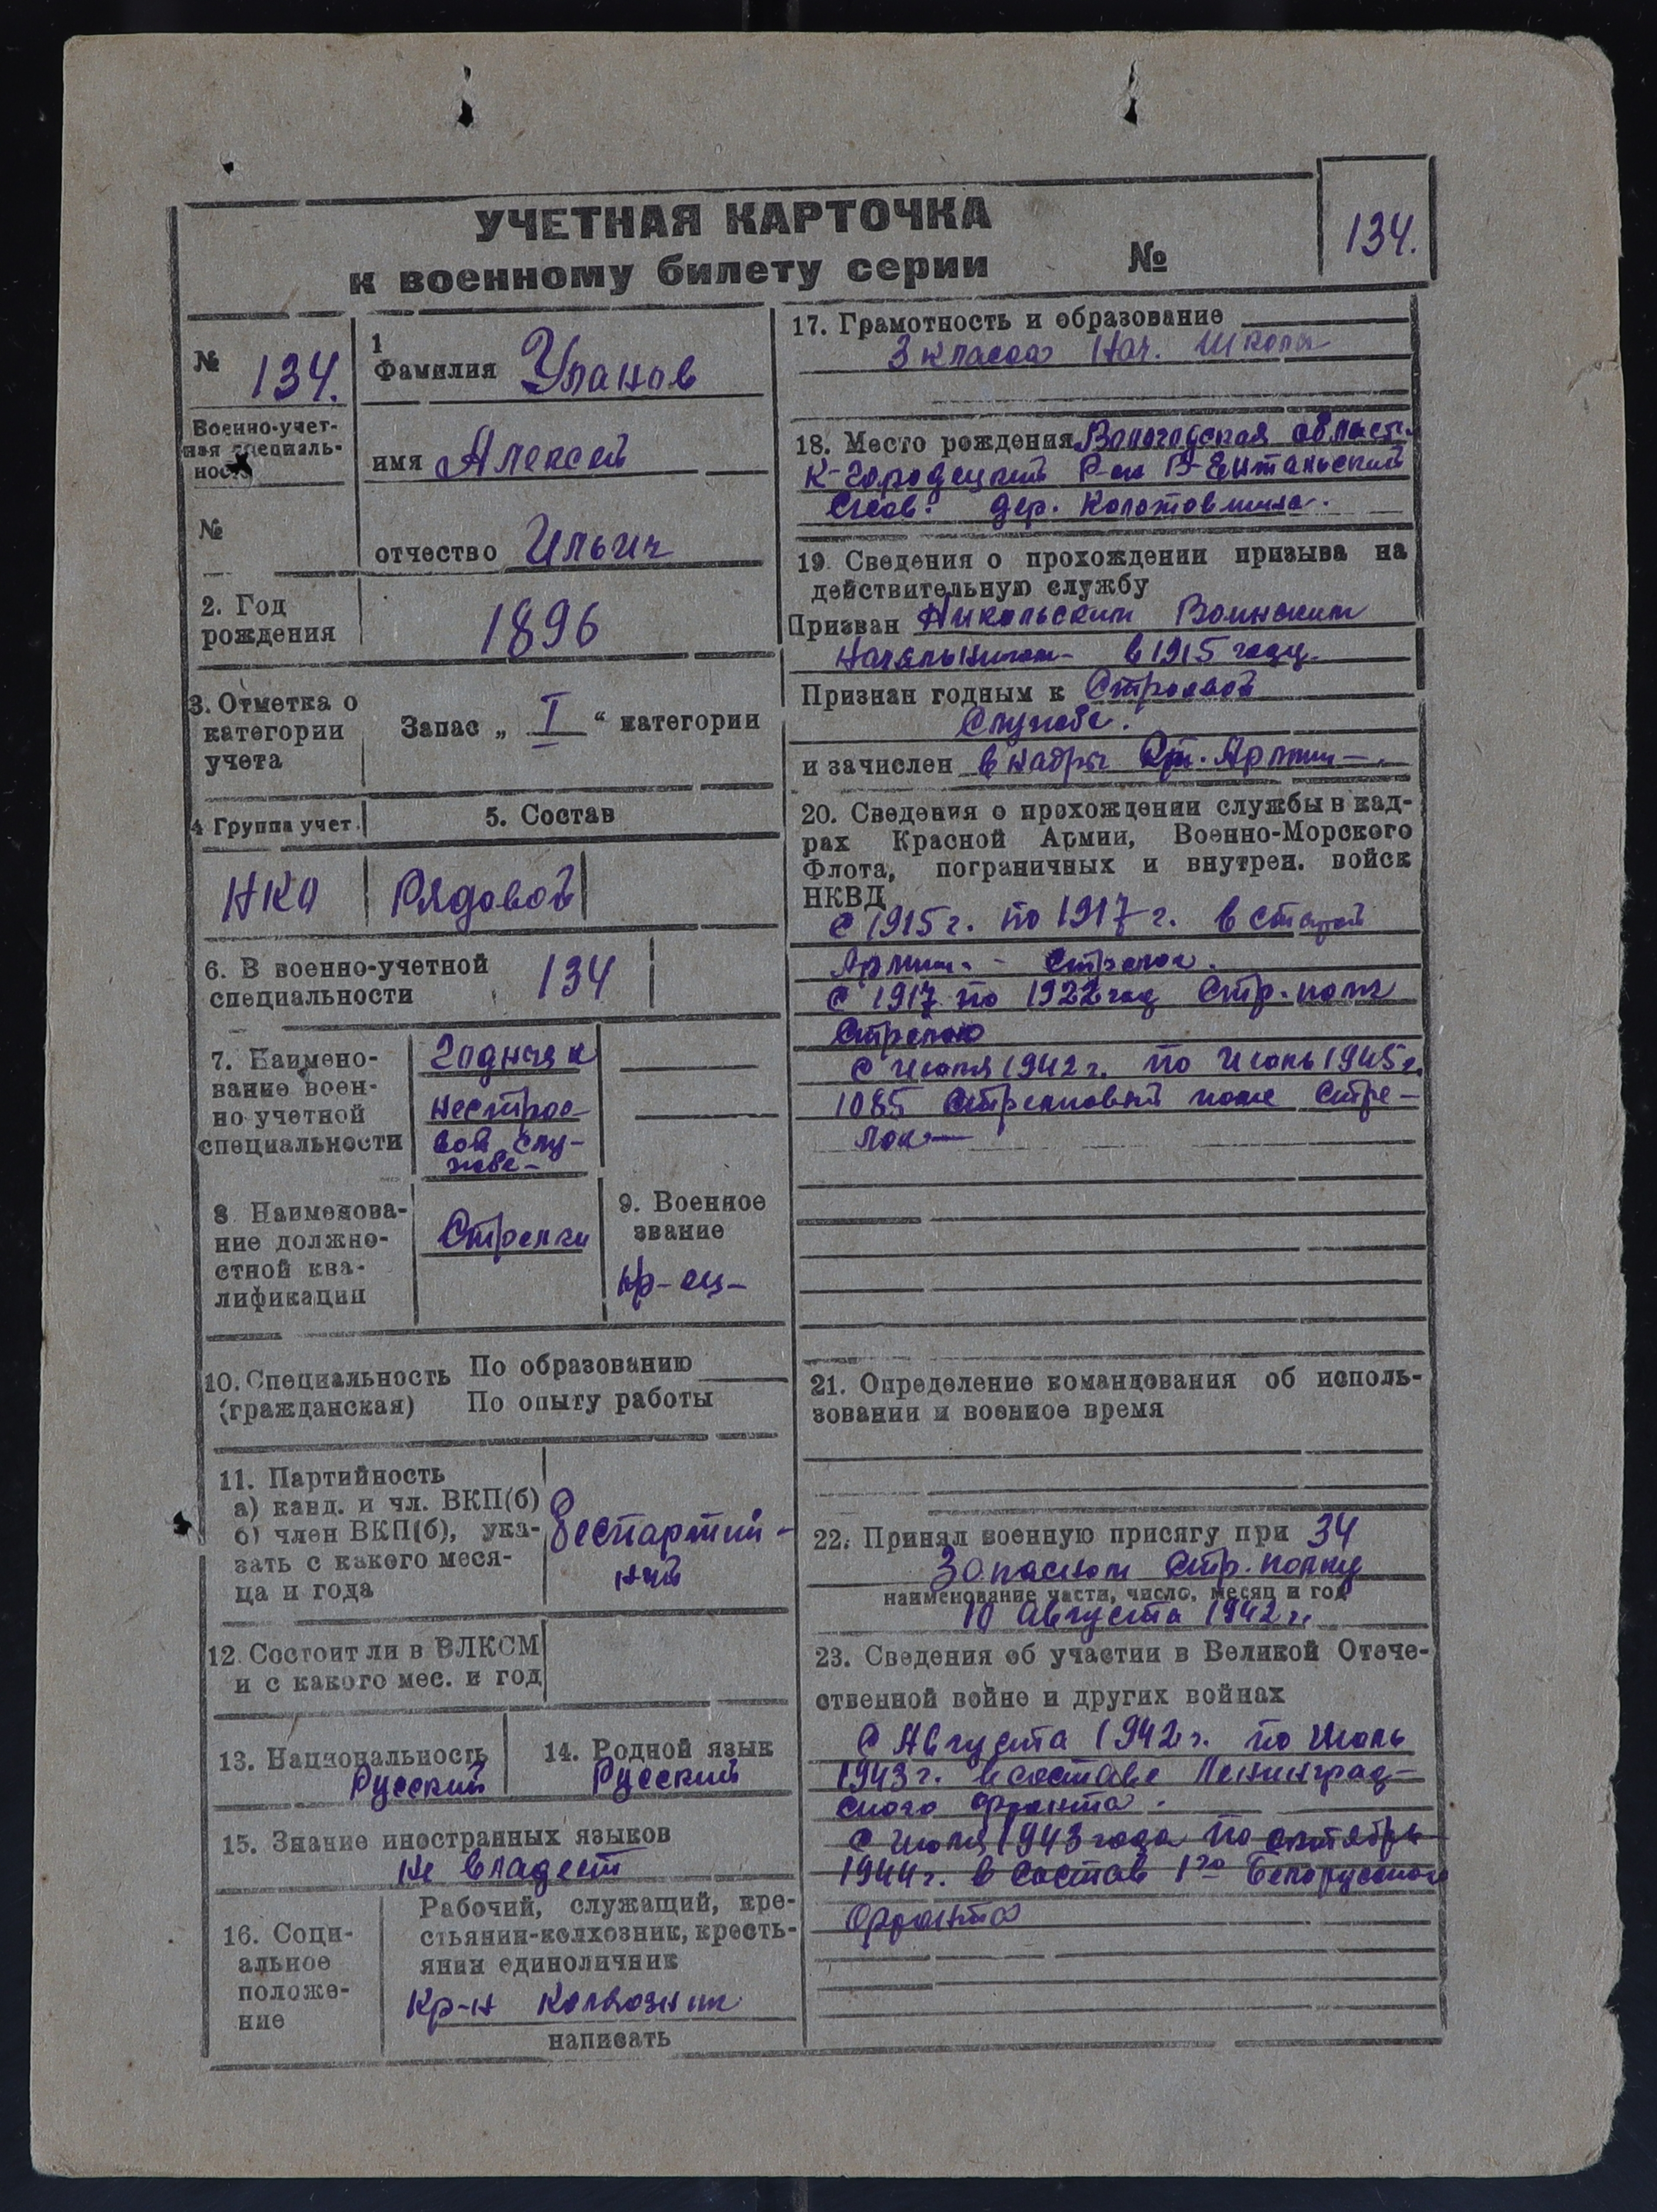 УЧЕТНАЯ КАРТОЧКА
к военному билету серии №
134.
№ 134.
Военно-учет-
ная специаль-
ность
№
1
Фамилия Уланов
имя Алексей
отчество Ильич
2. Год
рождения
1896
3. Отметка о
категории
учета
Запас „ I “ категории
4 Группа учет.
5. Состав
НКО
Рядовой
6. В военно-учетной
специальности
134
7. Наимено-
вание воен-
но учетной
специальности
Годный к
нестрое-
вой слу-
жбе-
8 Наименова-
ние должно-
стной ква-
лификации
Стрелки
9. Военное
звание
кр-ец-
10. Специальность
(гражданская)
По образованию
По опыту работы
11. Партийность
а) канд. и чл. ВКП(б)
б) член ВКП(б), ука-
зать с какого меся-
ца и года
Беспартий-
ный
12. Состоит ли в ВЛКСМ
и с какого мес. и год
13. Национальность
Русский
14. Родной язык
Русский
15. Знание иностранных языков
не владеет
16. Соци-
альное
положе-
ние
Рабочий, служащий, кре-
стьянин-колхозник, кресть-
янин единоличник
Кр-н Колхозник
написать
17. Грамотность и образование
3 класса Нач. Школы
18. Место рождения Вологодская область
К-Городецкий Р-он В-Ентальский
С/сов. дер. Колотовшина.
19. Сведения о прохождении призыва на
действительную службу
Призван Никольским Воинским
Начальником- в 1915 году.
Признан годным к Строевой
Службе.
и зачислен в кадры Ст. Армии-.
20. Сведения о прохождении службы в кад-
рах Красной Армии, Военно-Морского
Флота, пограничных и внутрен. войск
НКВД
С 1915 г. по 1917 г. в старой
Армии - Стрелок.
С 1917 по 1922 год Стр. полк
Стрелок
С июля 1942 г. по Июль 1945 г.
1085 Стрелковый полк Стре-
лок-
21. Определение командования об исполь-
зовании и военное время
22. Принял военную присягу при 34
Запасном Стр. полку
наименование части, число, месяц и год
10 Августа 1942 г.
23. Сведения об участии в Великой Отече-
ственной войне и других войнах
С Августа 1942 г. по Июль
1943 г. в составе Ленинград-
ского фронта.
С июля 1943 года по сентябрь
1944 г. в состав 1го Белорусского
Фронта